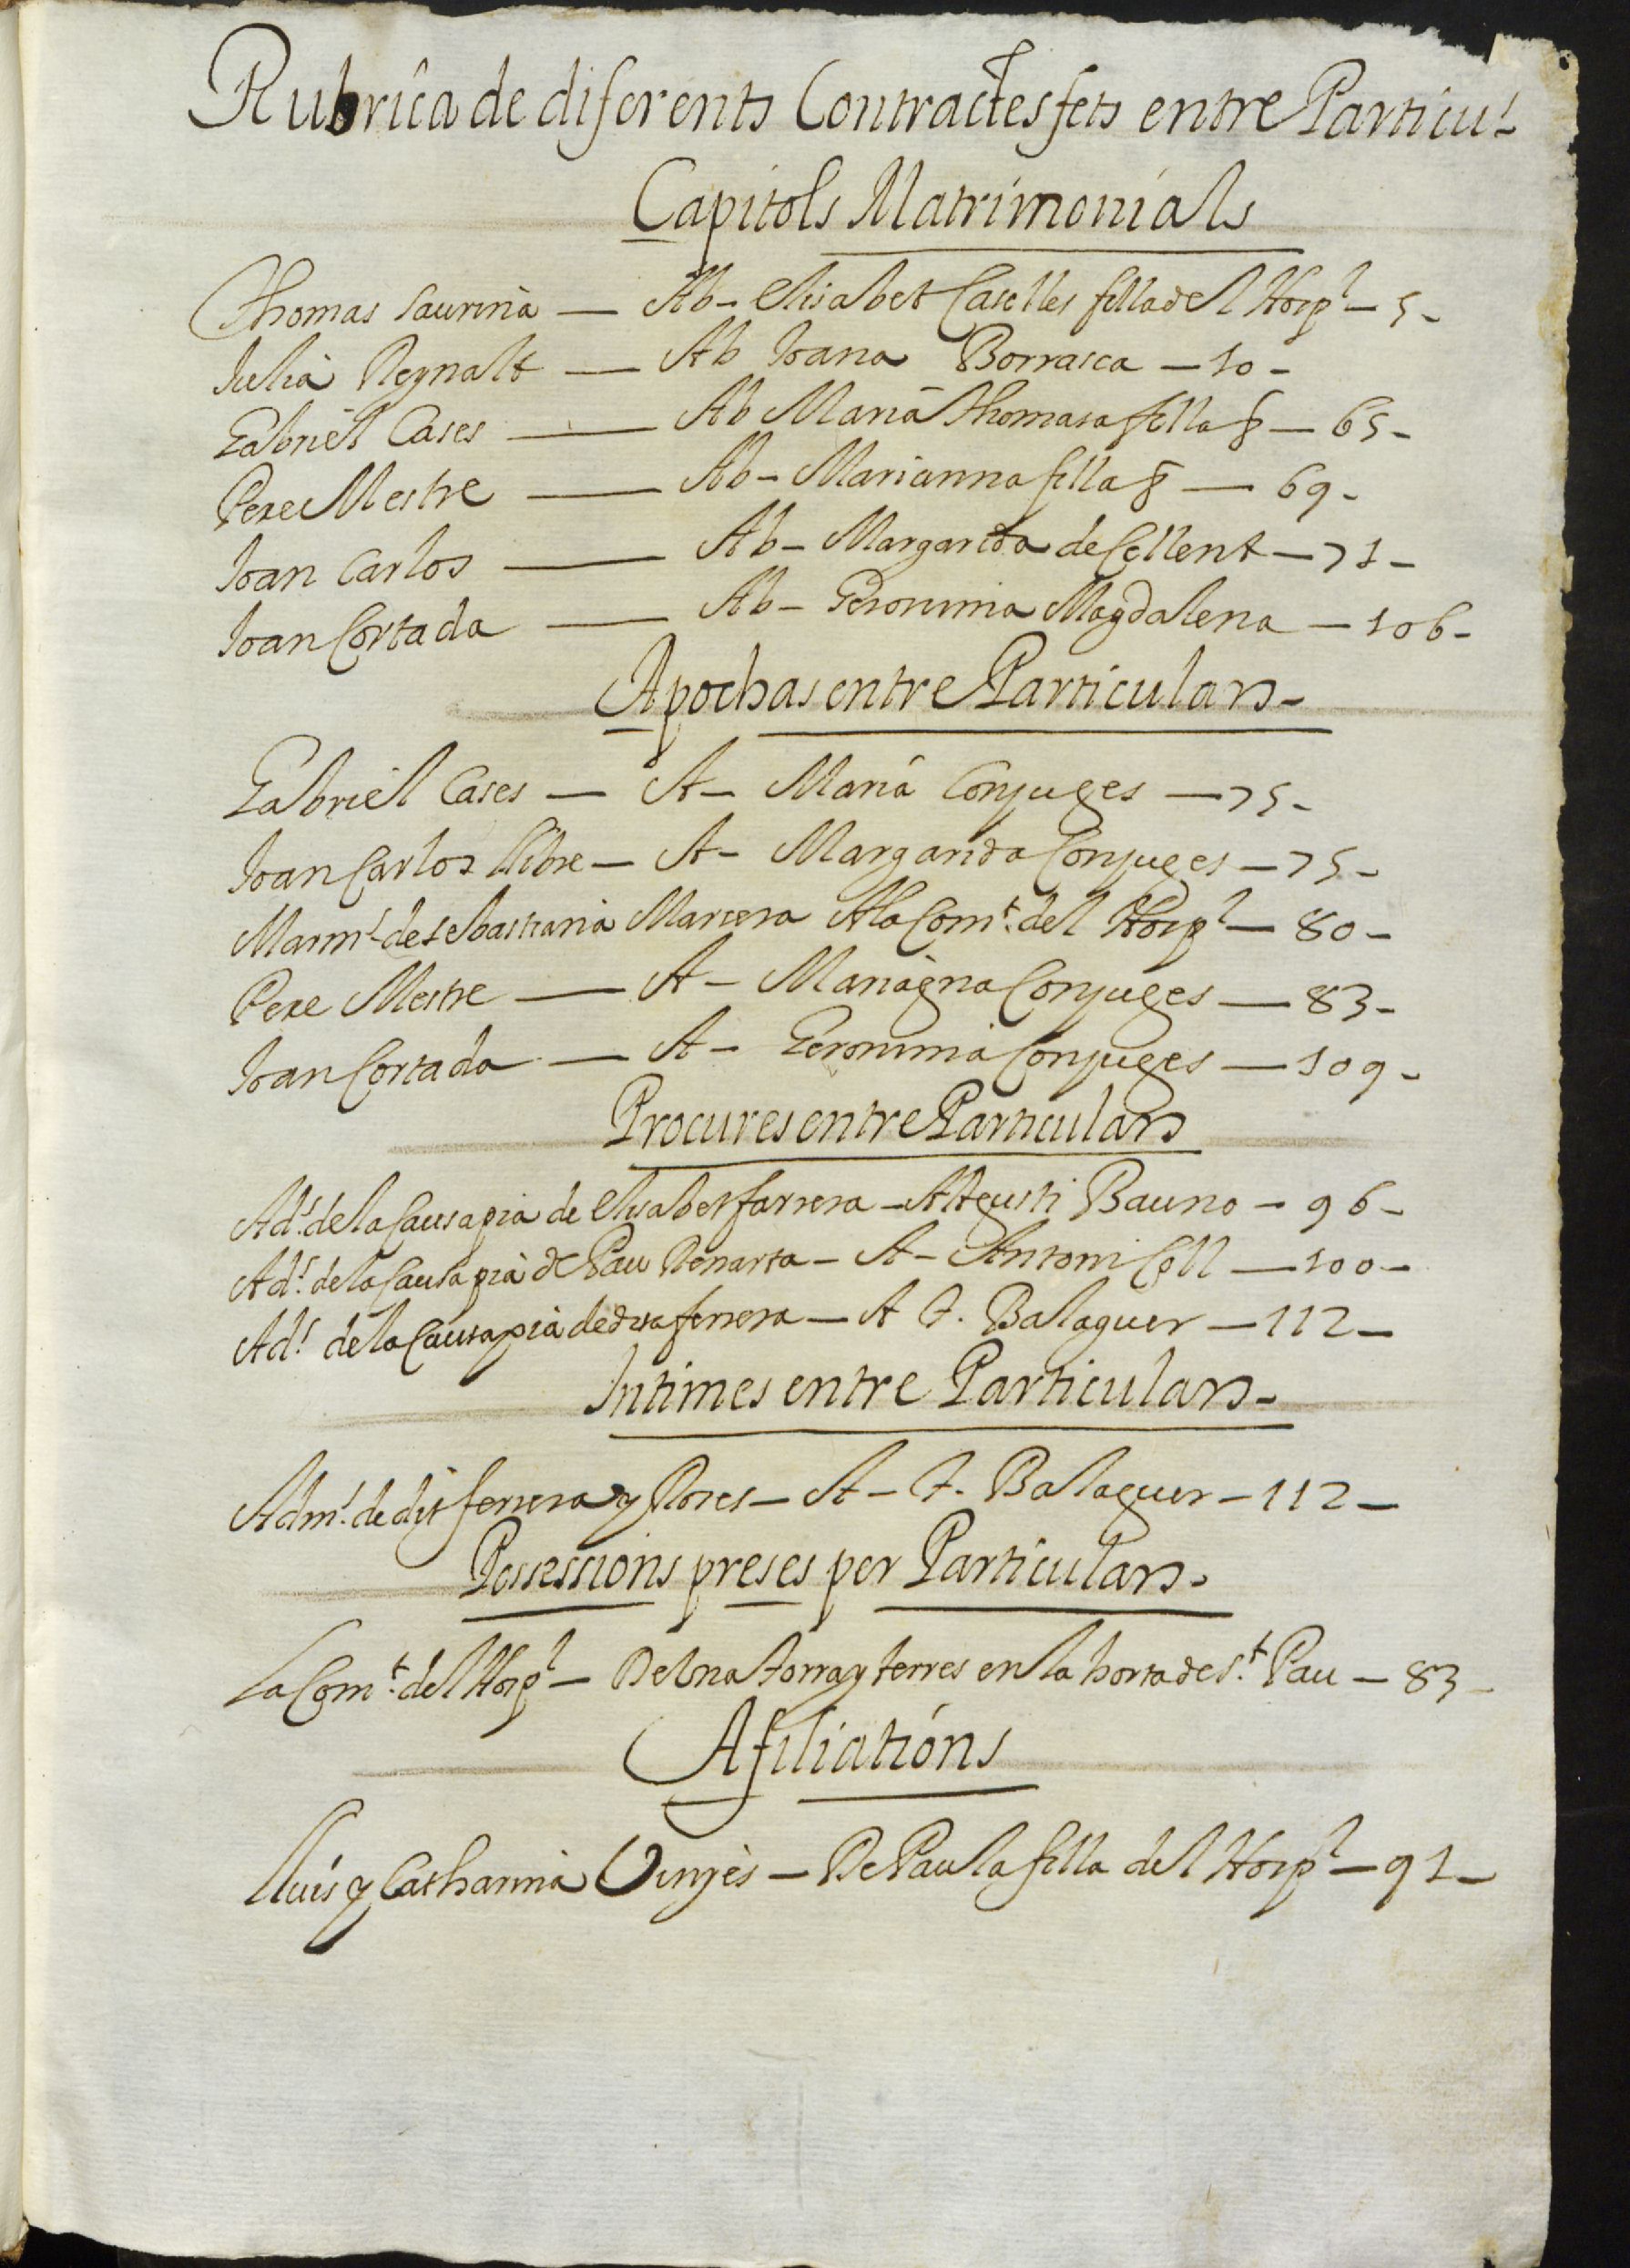 Rubrica de diferents Contractes fets entre Particu.ˢ
Capitols Matrimonials
Thomas Saurina — Ab - Elisabet Caselles filla del Hosp.ˡ — 5 -
Julià Reynalt — Ab Joana Borrasca — 10 -
Gabriel Cases — Ab Maria Thomasa filla — 65 -
Pere Mestre — Ab - Marianna filla — 69 -
Joan Carlos — Ab - Margarida de Collent — 71 -
Joan Cortada — Ab - Geronima Magdalena — 106 -
Apochas entre Particulars -
Gabriel Cases — A - Maria Conjuges — 75 -
Joan Carlos llibre — A - Margarida Conjuges — 75 -
Marm.ˢ de Sebastiana Marcera A la Com.ᵗ del Hosp.ˡ — 80 -
Pere Mestre — A - Mariagna Conjuges — 83 -
Joan Cortada — A - Geronima Conjuges — 109 -
Procures entre Particulars
Ad.ˢ de la Causa pia de Elisabet farrera — A Agusti Bauno — 96 -
Ad.ˢ de la Causa pia de Pau — A - Antoni Coll — 100 -
Ad.ˢ de la Causa pia de dita ferrera — A J. Balaguer — 112 -
Intimes entre Particulars -
Adm.ˢ de dit ferrera y — A - J. Balaguer — 112 -
Possessions preses per Particulars -
La Com.ᵗ del Hosp.ˡ — De Una torra y terres en la horta de S.ᵗ Pau — 83 -
Afiliatións
Lluis y Catharina Vinyes — De Paula filla del Hosp.ˡ — 91 -